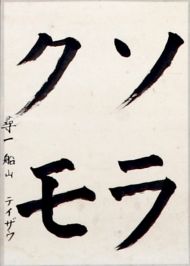 ソラ
クモ
尋一 船山 テイザウ